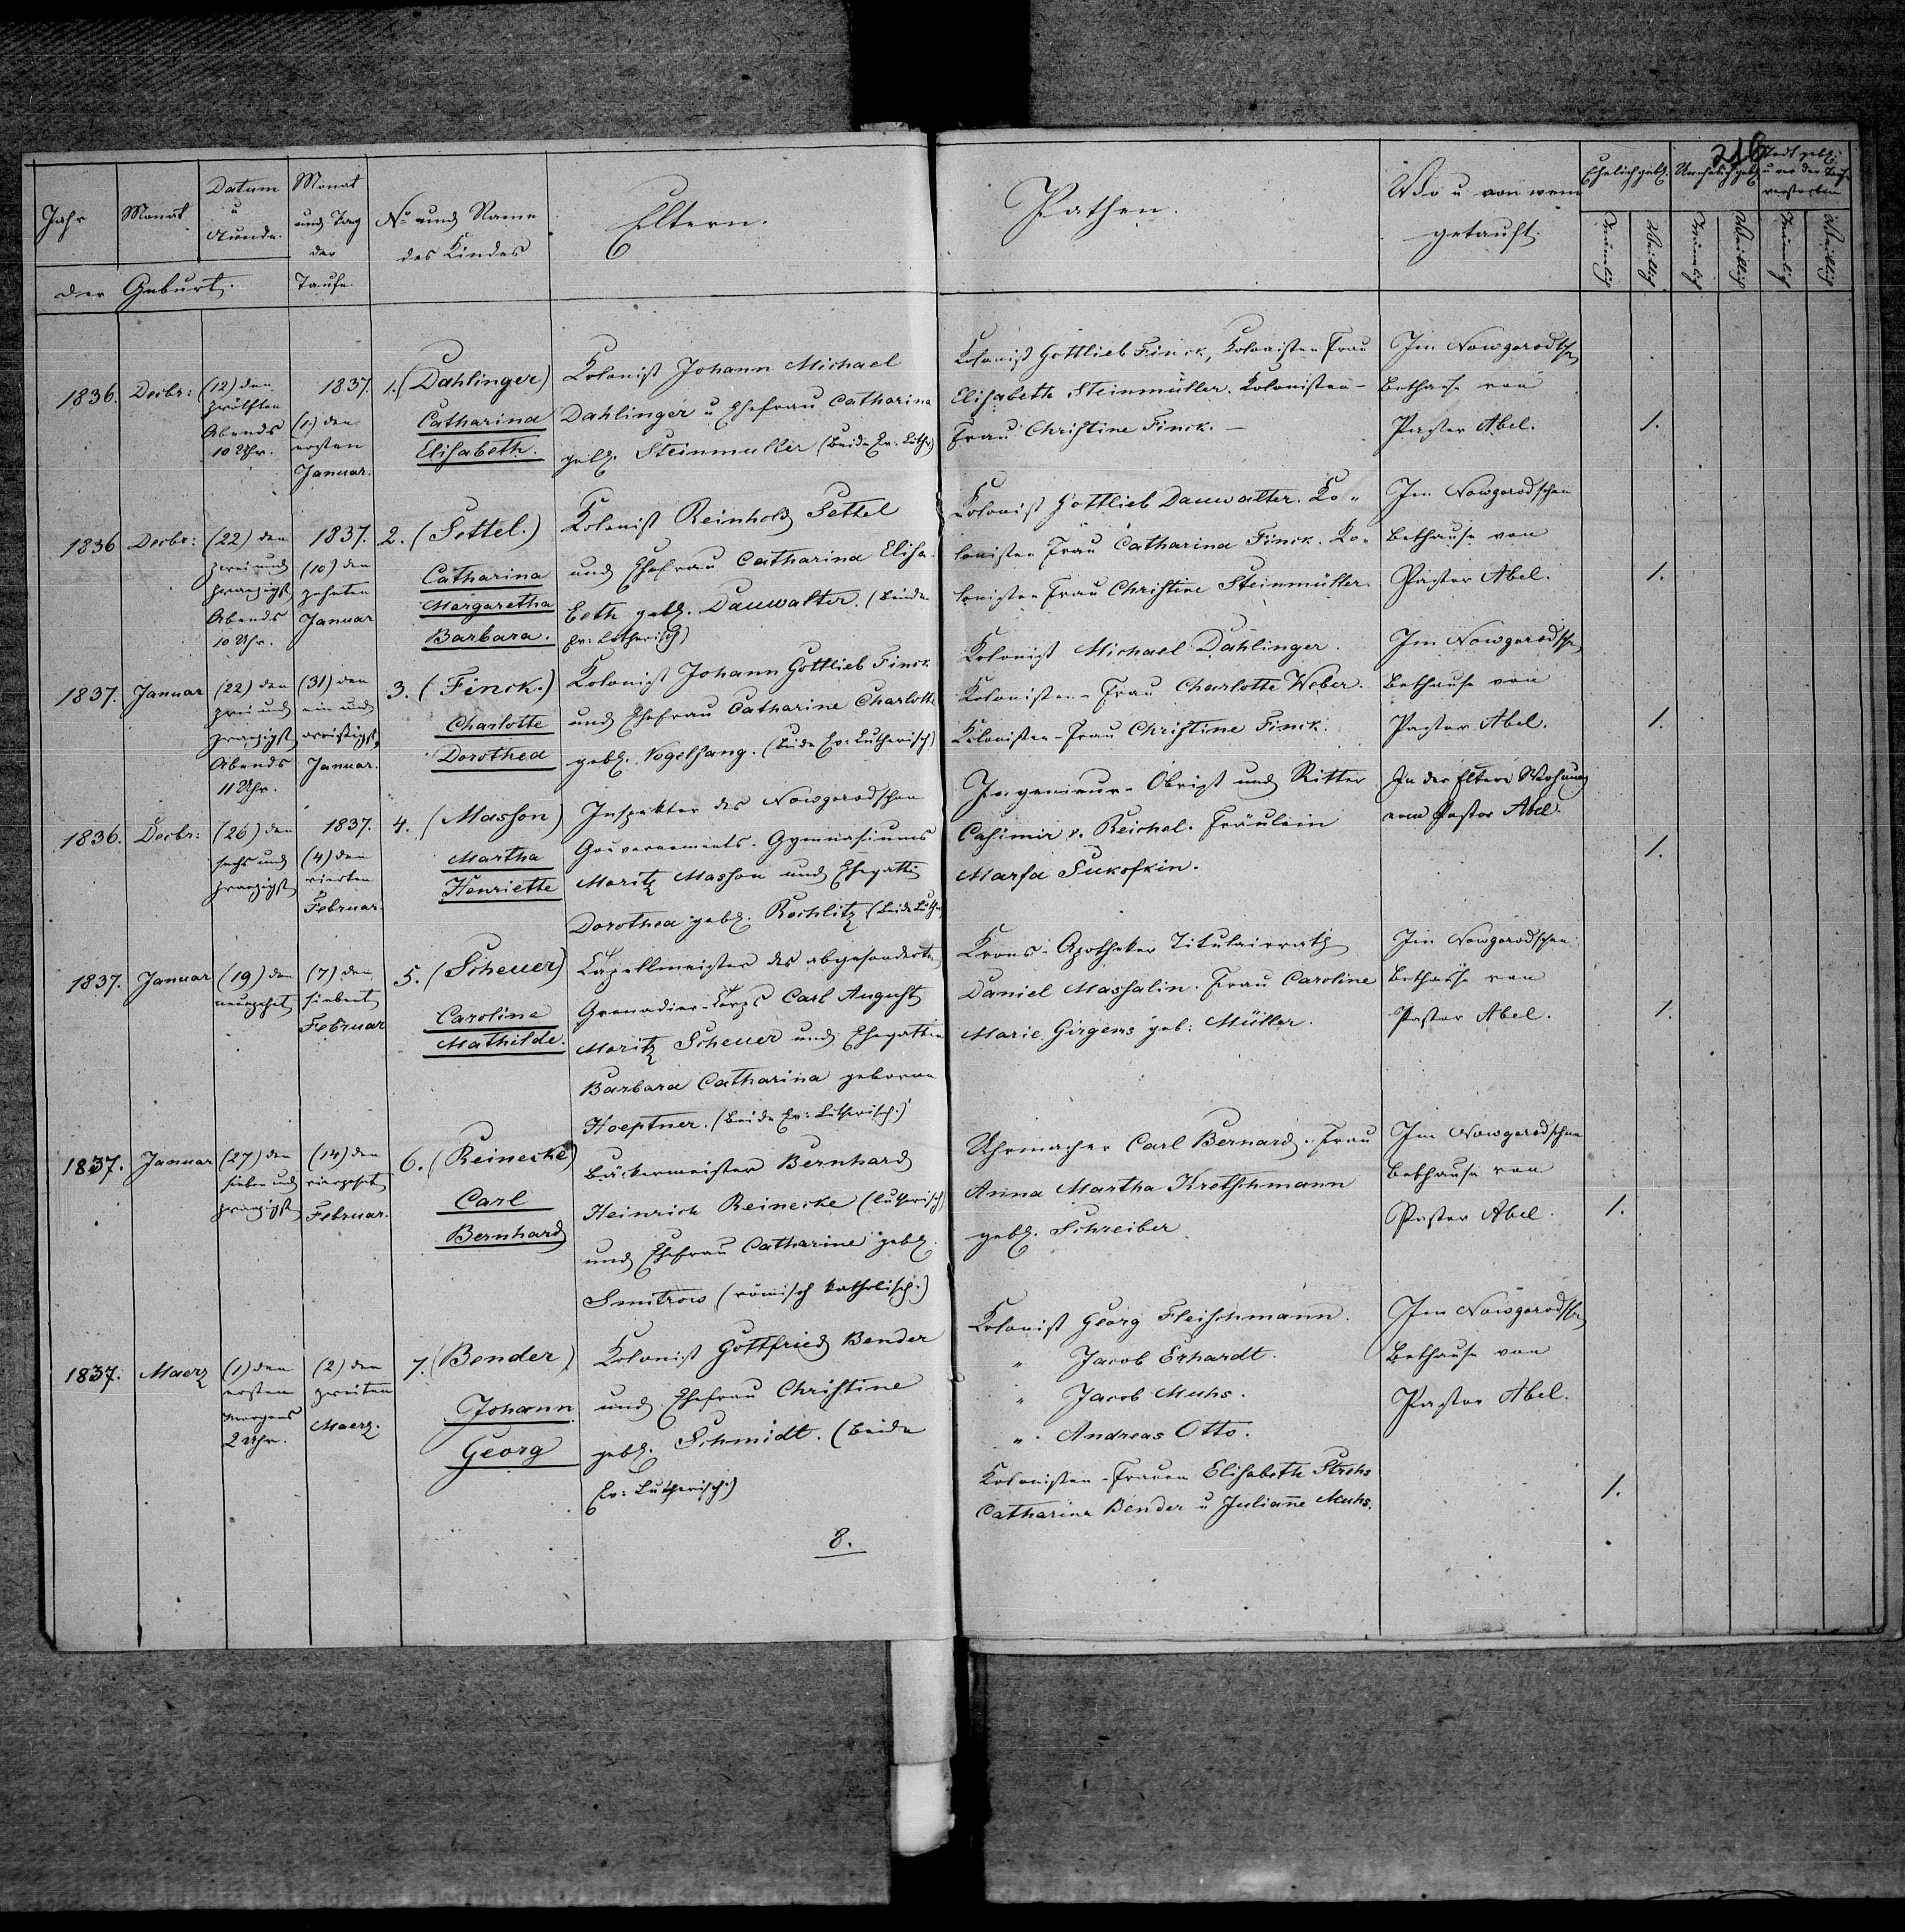 216
Jahr
Monat
Datum
u
Stunde.
der Geburt.
Monat
und Tag
der
Taufe.
No und Name
des Kindes
Eltern.
Pathen.
Wo u von wem
getauft.
Ehelich geb.
Unehelich geb.
Todt geb.
u vor der Taufe
verstorben
Männlich
Weiblich
Männlich
Weiblich
Männlich
Weiblich
1836.
Decbr:
(12) den
zwölften
Abends
10 Uhr.
1837.
(1) den
ersten
Januar.
1. (Dahlinger)
Catharina
Elisabeth.
Kolonist Johann Michael
Dahlinger u Ehefrau Catharina
geb. Steinmuller (beide Ev: Luth)
Kolonist Gottlieb Finck, Kolonisten Frau
Elisabeth Steinmüller. Kolonisten-
Frau Christine Finck. —
Im Nowgorodschen
Bethause von
Pastor Abel.
1.
1836
Decbr:
(22) den
zwei und
zwanzigst
Abends
10 Uhr.
1837.
(10) den
zehnten
Januar
2. (Settel.)
Catharina
Margaretha
Barbara.
Kolonist Reinhold Settel
und Ehefrau Catharina Elisa-
beth geb. Dauwalter. (beide
Ev: Lutherisch)
Kolonist Gottlieb Dauwalter. Ko-
lonisten Frau Catharina Finck. Ko-
lonisten Frau Christine Steinmüller.
Im Nowgorodschen
Bethause von
Pastor Abel.
1.
1837.
Januar
(22) den
zwei und
zwanzigst
Abends
11 Uhr.
(31) den
ein und
dreissigst
Januar.
3. (Finck.)
Charlotte
Dorothea
Kolonist Johann Gottlieb Finck
und Ehefrau Catharine Charlotte
geb. Vogelsang. (beide Ev: Lutherisch)
Kolonist Michael Dahlinger.
Kolonisten-Frau Charlotte Weber.
Kolonisten-Frau Christine Finck.
Im Nowgorodschen
Bethause von
Pastor Abel.
1.
1836.
Decbr:
(26) den
sechs und
zwanzigst
1837.
(4) den
vierten
Februar.
4. (Masson)
Martha
Henriette
Inspektor des Nowgorodschen
Gouvernements-Gymnasiums
Moritz Masson und Ehegattin
Dorothea geb. Rochlitz (beide Luth)
Ingenieur-Obrist und Ritter
Casimir v. Reichel. Fräulein
Marfa Sukofkin.
In der Eltern Wohnung
vom Pastor Abel.
1.
1837.
Januar
(19) den
neunzehnt
(7) den
siebent
Februar
5. (Scheuer)
Caroline
Mathilde.
Capellmeister des abgesonderten
Grenadier-Corps Carl August
Moritz Scheuer und Ehegattin
Barbara Catharina geborne
Hoeptner. (beide Ev: Lutherisch.)
Krons-Apotheker Titulairrath
Daniel Massalin. Frau Caroline
Marie Girgens geb: Müller.
Im Nowgorodschen
Bethause von
Pastor Abel.
1.
1837.
Januar
(27) den
sieben und
zwanzigst
(14) den
vierzehnt
Februar.
6. (Reinecke)
Carl
Bernhard
Bäckermeister Bernhard
Heinrich Reinecke (lutherisch)
und Ehefrau Catharine geb.
Smitrow (römisch katholisch.)
Uhrmacher Carl Bernard. Frau
Anna Martha Kretschmann
geb. Schreiber
Im Nowgorodschen
Bethause von
Pastor Abel.
1.
1837.
Maerz
(1) den
ersten
Morgens
2 Uhr.
(2) den
zweiten
Maerz.
7. (Bender)
Johann
Georg
Kolonist Gottfried Bender
und Ehefrau Christine
geb. Schmidt. (beide
Ev: Lutherisch.)
Kolonist Georg Fleischmann.
" Jacob Erhardt.
" Jacob Muhs.
" Andreas Otto.
Kolonisten-Frauen Elisabeth Strohs
Catharina Bender u Julianne Muhs.
Im Nowgorodschen
Bethause von
Pastor Abel.
1.
8.